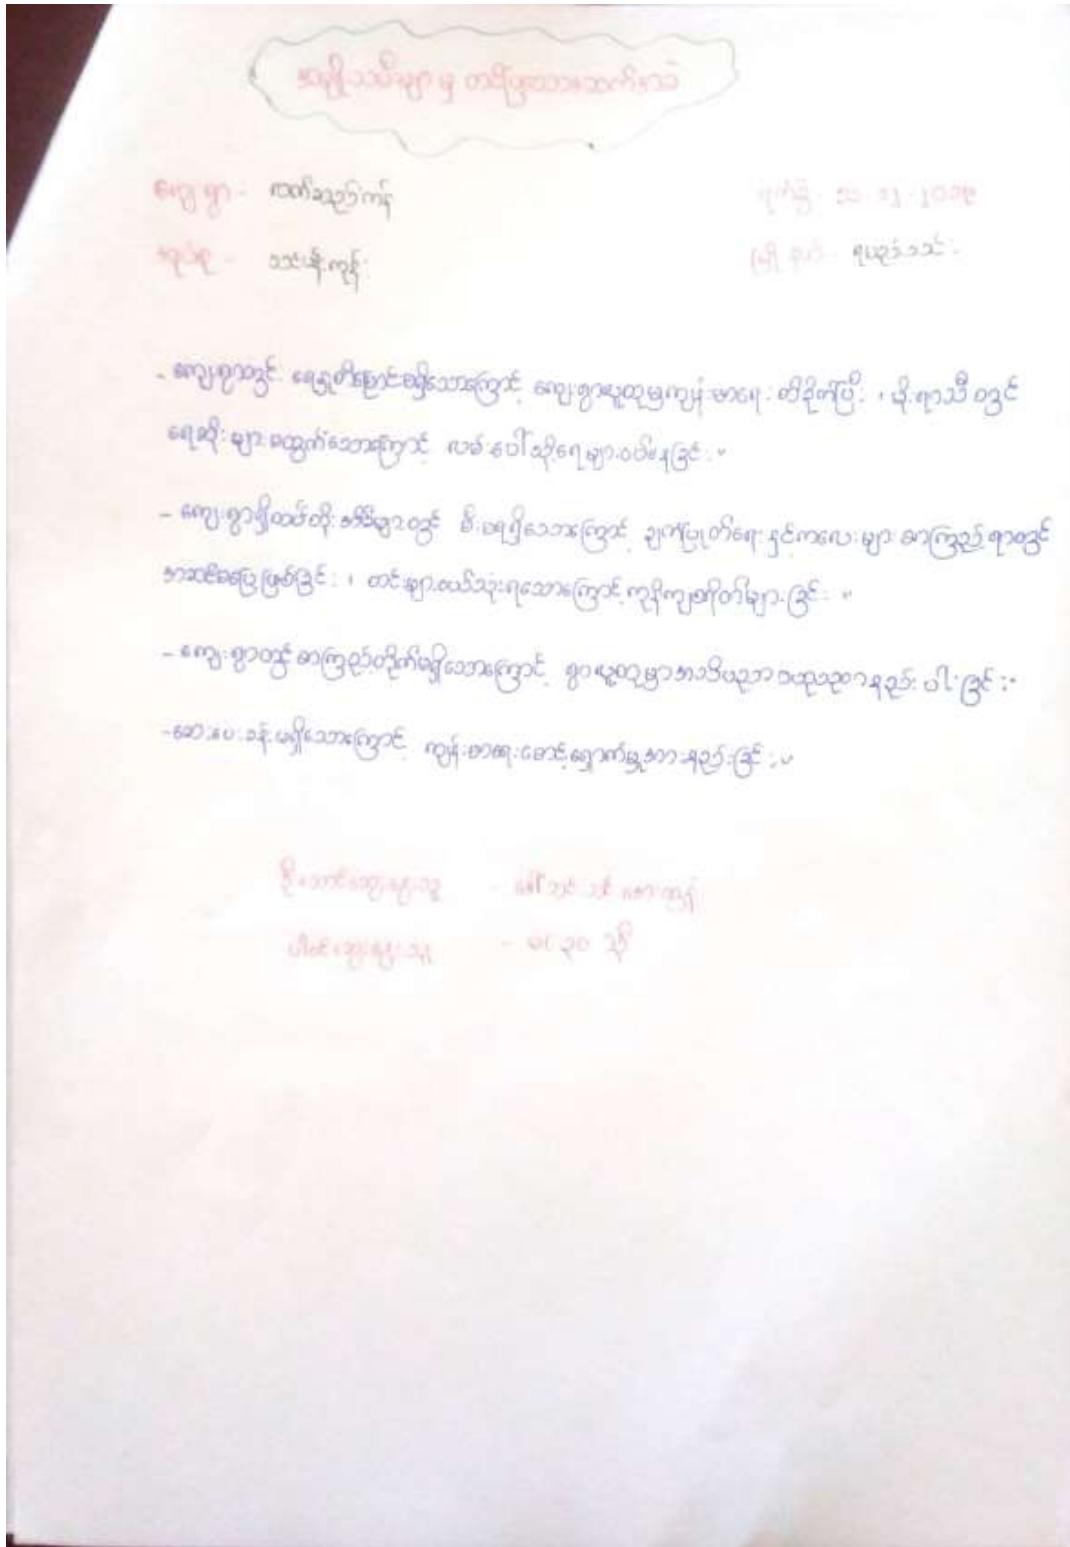 အမျိုးသမီးများ မှ တင်ပြသောအခက်အခဲ
ကျေးရွာ - လက်သည်ကန် ရက်စွဲ - ၁၁.၁၂.၂၀၁၉
အုပ်စု - သင်းပန်းကုန်း မြို့နယ် - ရမည်းသင်း
- ကျေးရွာတွင် ရေနုတ်မြောင်းမရှိသောကြောင့် ကျေးရွာလူထုမှကျန်းမာရေး ထိခိုက်ပြီး ၊ မိုးရာသီ တွင်
ရေဆိုးများ မထွက်သောကြောင့် လမ်းပေါ်သို့ရေများဝပ်နေခြင်း ။
- ကျေးရွာရှိထပ်တိုးအိမ်များတွင် မီးမရရှိသောကြောင့် ချက်ပြုတ်ရေးနှင့်ကလေးများ စာကြည့်ရာတွင်
အဆင်မပြေဖြစ်ခြင်း ၊ ထင်းများဝယ်သုံးရသောကြောင့် ကုန်ကျစရိတ်များခြင်း ။
- ကျေးရွာတွင် စာကြည့်တိုက်မရှိသောကြောင့် ရွာလူထုမှာအသိပညာ ဗဟုသုတနည်းပါးခြင်း ။
- ဆေးပေးခန်းမရှိသောကြောင့် ကျန်းမာရေးစောင့်ရှောက်မှုအားနည်းခြင်း ။
ဦးဆောင်ဆွေးနွေးသူ - ဒေါ်
ပါဝင်ဆွေးနွေးသူ - မ( ၃၀ )ဦး